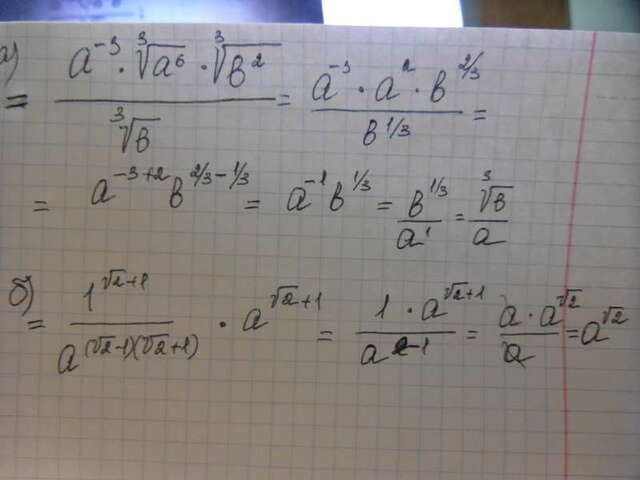 а) = (a^{-3} · ∛a^6 · ∛b^2) / ∛b = (a^{-3} · a^2 · b^{2/3}) / b^{1/3} =
= a^{-3+2} b^{2/3-1/3} = a^{-1} b^{1/3} = b^{1/3} / a^1 = ∛b / a
б) = 1^{√2+1} / a^{(√2-1)(√2+1)} · a^{√2+1} = (1 · a^{√2+1}) / a^{2-1} = (a · a^{√2}) / a = a^{√2}